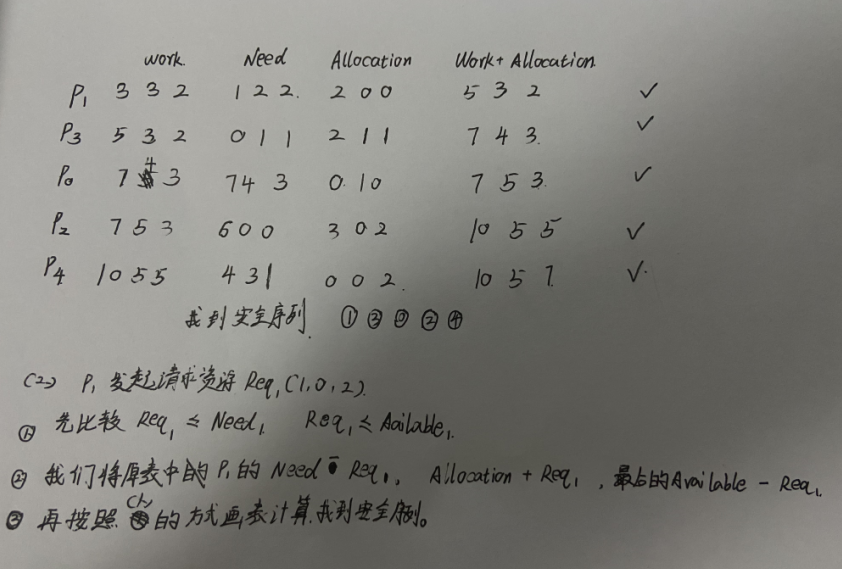 work. Need Allocation Work+ Allocation
P1 3 3 2 1 2 2. 2 0 0 5 3 2 ✓
P3 5 3 2 0 1 1 2 1 1 7 4 3. ✓
P0 7 4 3 7 4 3 0 1 0 7 5 3. ✓
P2 7 5 3 6 0 0 3 0 2 10 5 5 ✓
P4 10 5 5 4 3 1 0 0 2. 10 5 7. ✓.
找到安全序列. ① ③ ⓪ ② ④
(2) P1 发起请求资源 Req1(1,0,2).
① 先比较 Req1 ≤ Need1. Req1 ≤ Aailable1.
② 我们将原表中的 P1 的 Need - Req1. Allocation + Req1 , 最右的 Available - Req1.
③ 再按照 (1) 的方式画表计算.找到安全序列。